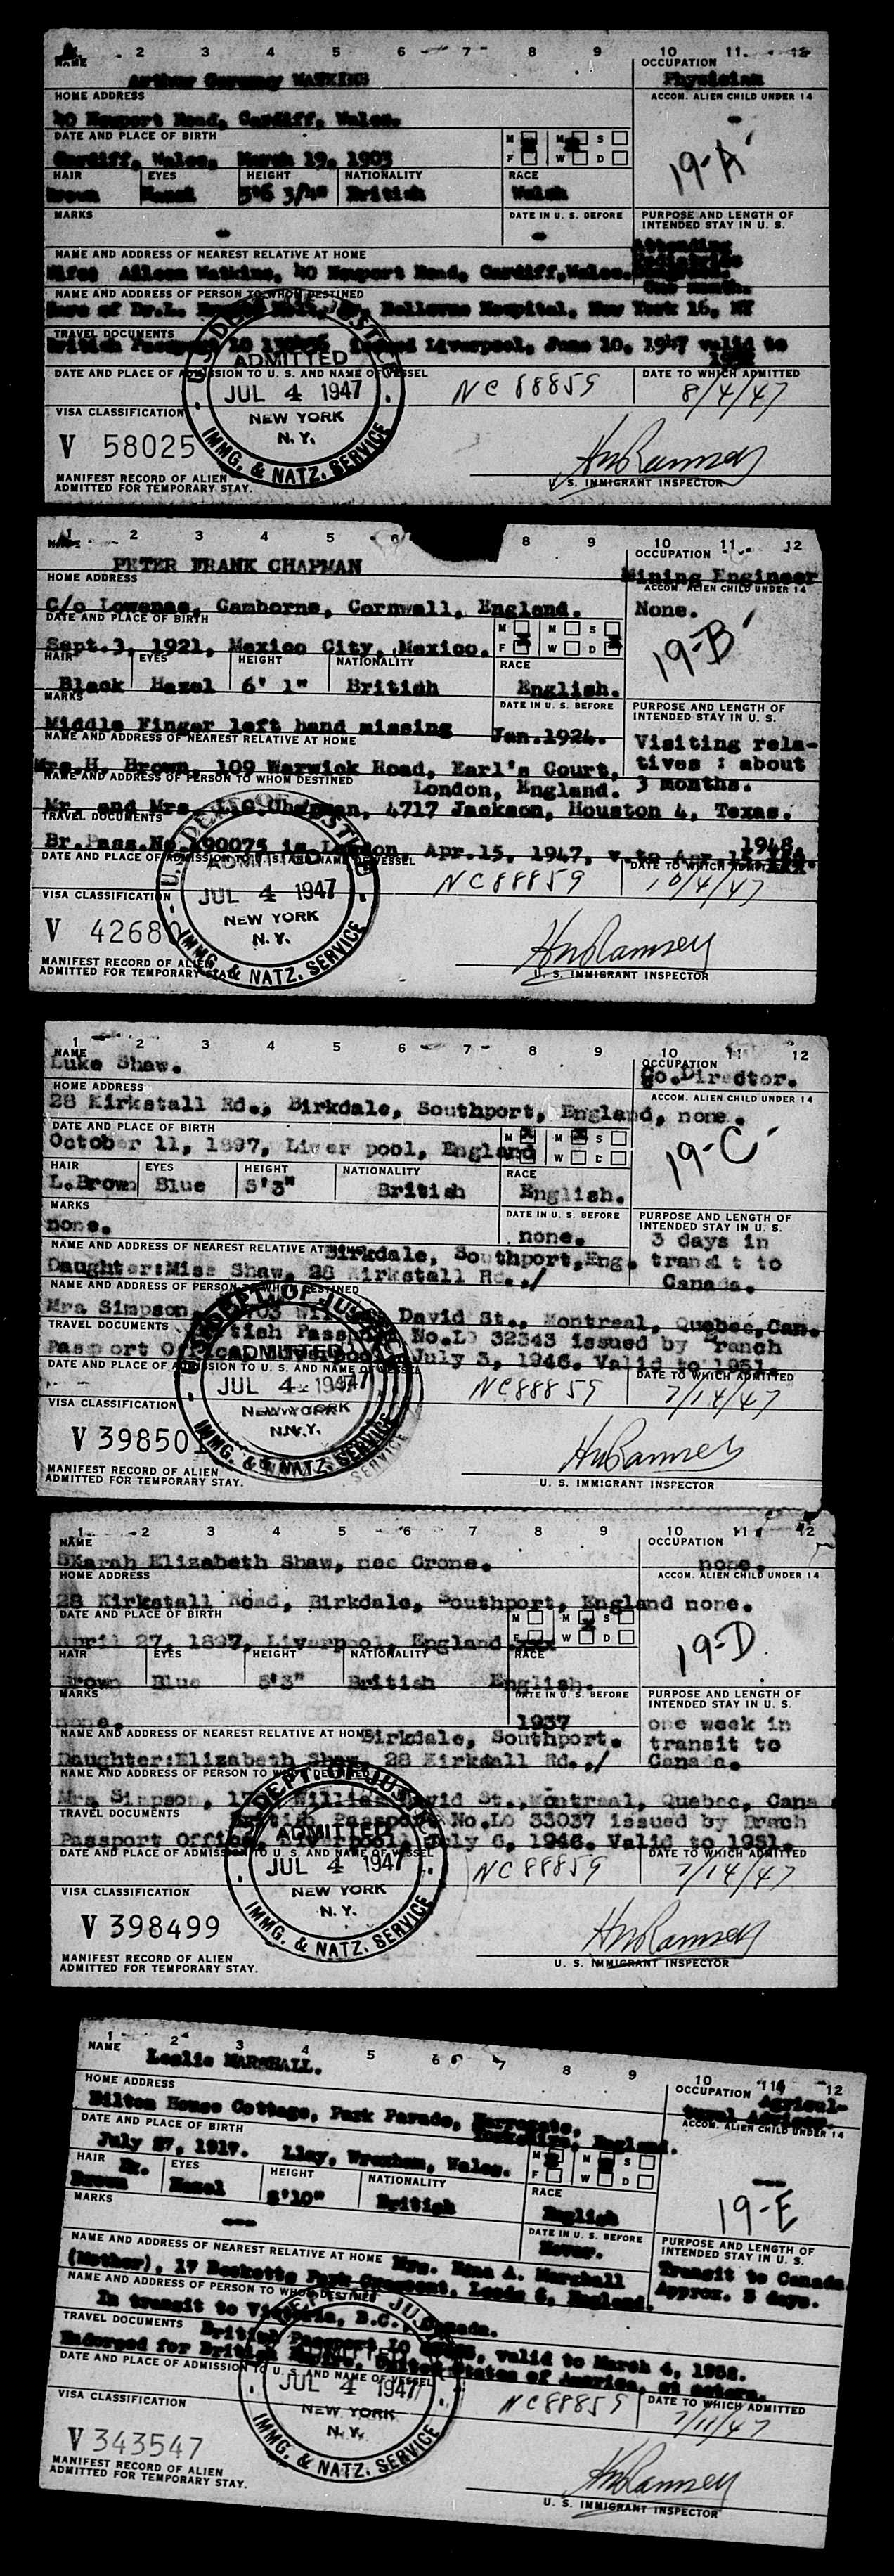 1 2 3 4 5 6 7 8 9 10 11 12
NAME OCCUPATION
Arthur WATKINS Physician
HOME ADDRESS ACCOM. ALIEN CHILD UNDER 14
40 Newport Road, Cardiff, Wales. -
DATE AND PLACE OF BIRTH M M S
Cardiff, Wales, March 19, 1903 F W D
19-A
HAIR EYES HEIGHT NATIONALITY RACE
Brown Hazel 5'6 3/4" British Welsh
MARKS DATE IN U. S. BEFORE PURPOSE AND LENGTH OF
INTENDED STAY IN U. S.
- - Attending
NAME AND ADDRESS OF NEAREST RELATIVE AT HOME
Wife: Aileen Watkins, 40 Newport Road, Cardiff, Wales.
One month.
NAME AND ADDRESS OF PERSON TO WHOM DESTINED
Care of Dr.L. Bellevue Hospital, New York 16, NY
TRAVEL DOCUMENTS
British Passport LO issued Liverpool, June 10, 1947 valid to
DATE AND PLACE OF ADMISSION TO U. S. AND NAME OF VESSEL DATE TO WHICH ADMITTED
NC 88859 8/4/47
U.S. DEPT. OF JUSTICE
ADMITTED
JUL 4 1947
NEW YORK
N.Y.
IMMG. & NATZ. SERVICE
VISA CLASSIFICATION
V 58025
HnRamsey
MANIFEST RECORD OF ALIEN
ADMITTED FOR TEMPORARY STAY.
U. S. IMMIGRANT INSPECTOR
1 2 3 4 5 6 8 9 10 11 12
NAME OCCUPATION
PETER FRANK CHAPMAN Mining Engineer
HOME ADDRESS ACCOM. ALIEN CHILD UNDER 14
C/o Lowenac, Camborne, Cornwall, England. None.
DATE AND PLACE OF BIRTH M M S
Sept.3, 1921, Mexico City, Mexico. F W D
19-B
HAIR EYES HEIGHT NATIONALITY RACE
Black Hazel 6' 1" British English.
MARKS DATE IN U. S. BEFORE PURPOSE AND LENGTH OF
INTENDED STAY IN U. S.
Middle Finger left hand missing Jan.1924. Visiting rela-
NAME AND ADDRESS OF NEAREST RELATIVE AT HOME
tives : about
Mrs.H. Brown, 109 Warwick Road, Earl's Court, 3 months.
NAME AND ADDRESS OF PERSON TO WHOM DESTINED London, England.
Mr. and Mrs. Chapman, 4717 Jackson, Houston 4, Texas.
TRAVEL DOCUMENTS
Br.Pass.No. 90075 is London, Apr.15, 1947, v.to Apr.15 1948.
DATE AND PLACE OF ADMISSION TO U. S. AND NAME OF VESSEL DATE TO WHICH ADMITTED
NC88859 10/4/47
U.S. DEPT. OF JUSTICE
ADMITTED
JUL 4 1947
NEW YORK
N.Y.
IMMG. & NATZ. SERVICE
VISA CLASSIFICATION
V 42680
HnRamsey
MANIFEST RECORD OF ALIEN
ADMITTED FOR TEMPORARY STAY
U. S. IMMIGRANT INSPECTOR
1 2 3 4 5 6 7 8 9 10 11 12
NAME OCCUPATION
Luke Shaw. Co.Director.
HOME ADDRESS ACCOM. ALIEN CHILD UNDER 14
28 Kirkstall Rd., Birkdale, Southport, England, none.
DATE AND PLACE OF BIRTH M M S
October 11, 1897, Liver pool, England F W D
19-C
HAIR EYES HEIGHT NATIONALITY RACE
L.Brown Blue 5'3" British English.
MARKS DATE IN U. S. BEFORE PURPOSE AND LENGTH OF
INTENDED STAY IN U. S.
none. none. 3 days in
NAME AND ADDRESS OF NEAREST RELATIVE AT Birkdale, Southport,Eng. transit to
Daughter:Miss Shaw, 28 Kirkstall Rd../ Canada.
NAME AND ADDRESS OF PERSON TO WHOM DESTINED
Mrs Simpson, 1703 William David St., Montreal, Quebec,Can.
TRAVEL DOCUMENTS British Passport No.LO 32343 issued by Branch
Passport Office, Liverpool, July 3, 1946. Valid to 1951.
DATE AND PLACE OF ADMISSION TO U. S. AND NAME OF VESSEL DATE TO WHICH ADMITTED
NC88859 7/14/47
U.S. DEPT. OF JUSTICE
ADMITTED
JUL 4 1947
NEW YORK
N.Y.
IMMG. & NATZ. SERVICE
VISA CLASSIFICATION
V 398501
HnRamsey
MANIFEST RECORD OF ALIEN
ADMITTED FOR TEMPORARY STAY.
U. S. IMMIGRANT INSPECTOR
1 2 3 4 5 6 7 8 9 10 11 12
NAME OCCUPATION
Sarah Elizabeth Shaw, nee Crone. none.
HOME ADDRESS ACCOM. ALIEN CHILD UNDER 14
28 Kirkstall Road, Birkdale, Southport, England none.
DATE AND PLACE OF BIRTH M M S
April 27, 1897, Liverpool, England.xxx F W D
19-D
HAIR EYES HEIGHT NATIONALITY RACE
Brown Blue 5'3" British English.
MARKS DATE IN U. S. BEFORE PURPOSE AND LENGTH OF
INTENDED STAY IN U. S.
none. 1937 one week in
NAME AND ADDRESS OF NEAREST RELATIVE AT HOME Birkdale, Southport. transit to
Daughter:Elizabeth Shaw, 28 Kirksall Rd../ Canada.
NAME AND ADDRESS OF PERSON TO WHOM DESTINED
Mrs Simpson, William David St.,Montreal, Quebec, Cana
TRAVEL DOCUMENTS British Passport No.LO 33037 issued by Brach
Passport Office, Liverpool, July 6, 1946. Valid to 1951.
DATE AND PLACE OF ADMISSION TO U. S. AND NAME OF VESSEL DATE TO WHICH ADMITTED
NC88859 7/14/47
DEPT. OF JUSTICE
ADMITTED
JUL 4 1947
NEW YORK
N.Y.
IMMG. & NATZ. SERVICE
VISA CLASSIFICATION
V 398499
HnRamsey
MANIFEST RECORD OF ALIEN
ADMITTED FOR TEMPORARY STAY.
U. S. IMMIGRANT INSPECTOR
1 2 3 4 5 6 7 8 9 10 11 12
NAME OCCUPATION
Leslie MARSHALL. Agricul-
tural Adviser.
HOME ADDRESS ACCOM. ALIEN CHILD UNDER 14
Bilton House Cottage, Park Parade, Harrogate,
Yorkshire, England.
DATE AND PLACE OF BIRTH M M S
July 27, 1917. Llay, Wrexham, Wales. F W D
19-E
HAIR EYES HEIGHT NATIONALITY RACE
Dk. Brown Hazel 5'10" British English
MARKS DATE IN U. S. BEFORE PURPOSE AND LENGTH OF
INTENDED STAY IN U. S.
Never. Transit to Canada
NAME AND ADDRESS OF NEAREST RELATIVE AT HOME Mrs. Edna A. Marshall Approx. 3 days.
(Mother), 17 Becketts Park Crescent, Leeds 6, England.
NAME AND ADDRESS OF PERSON TO WHOM DESTINED
In transit to Victoria, B.C., Canada.
TRAVEL DOCUMENTS British Passport LO valid to March 4, 1952.
Endorsed for British Empire, United States of America,
DATE AND PLACE OF ADMISSION TO U. S. AND NAME OF VESSEL DATE TO WHICH ADMITTED
NC88859 7/11/47
DEPT. OF JUSTICE
JUL 4 1947
NEW YORK
N.Y.
IMMG. & NATZ. SERVICE
VISA CLASSIFICATION
V 343547
HnRamsey
MANIFEST RECORD OF ALIEN
ADMITTED FOR TEMPORARY STAY.
U. S. IMMIGRANT INSPECTOR